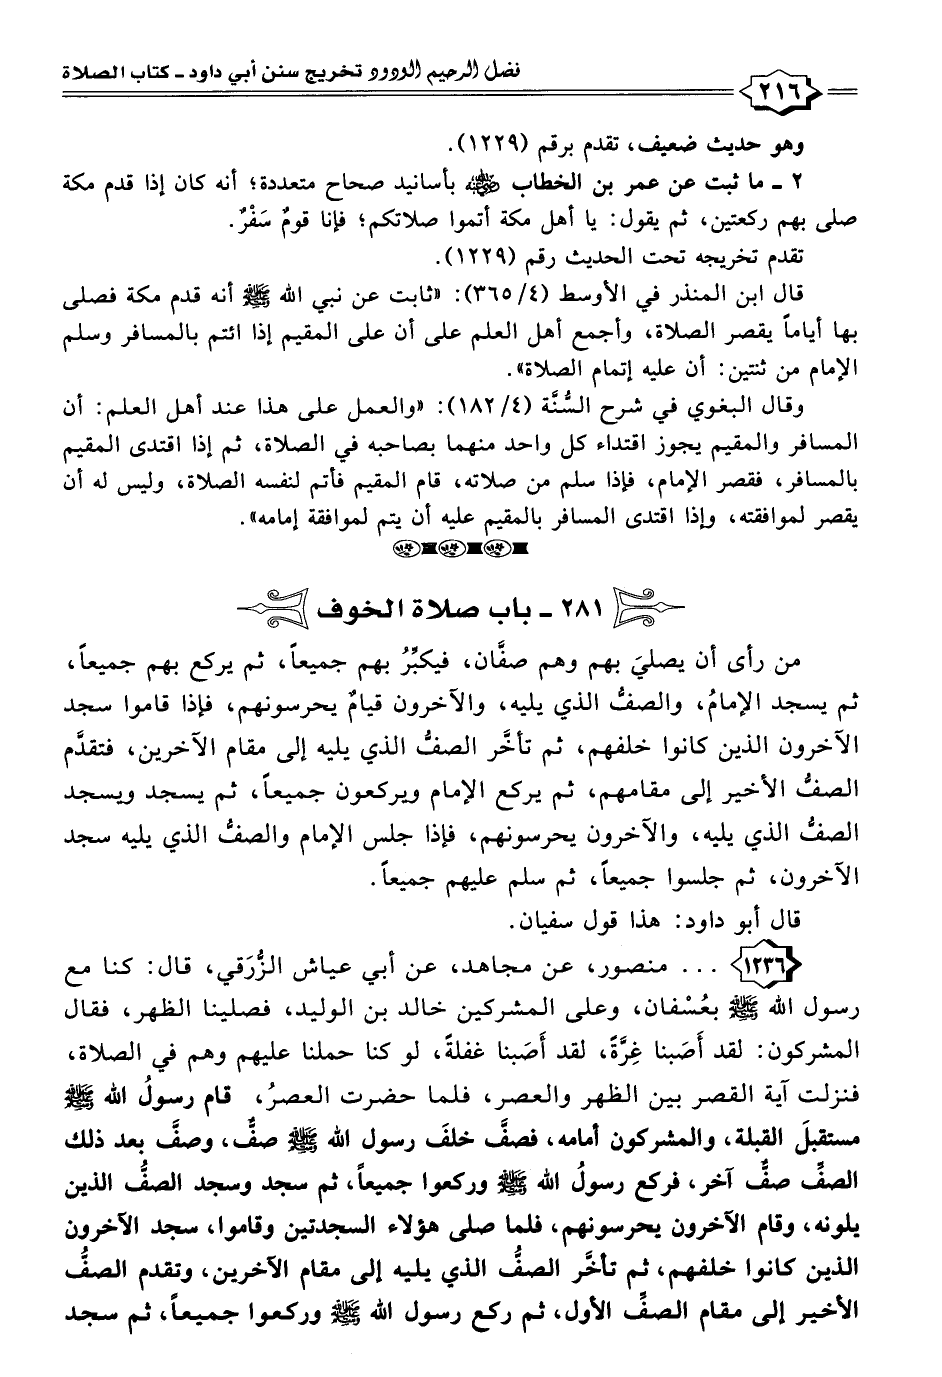 فضل الرحيم الودود تخريج سنن أبي داود - كتاب الصلاة
٢١٦
وهو حديث ضعيف، تقدم برقم (١٢٢٩).
٢ - ما ثبت عن عمر بن الخطاب رضي الله عنه بأسانيد صحاح متعددة؛ أنه كان إذا قدم مكة
صلى بهم ركعتين، ثم يقول: يا أهل مكة أتموا صلاتكم؛ فإنا قومٌ سَفْرٌ.
تقدم تخريجه تحت الحديث رقم (١٢٢٩).
قال ابن المنذر في الأوسط (٣٦٥/٤): «ثابت عن نبي الله ﷺ أنه قدم مكة فصلى
بها أياماً يقصر الصلاة، وأجمع أهل العلم على أن على المقيم إذا ائتم بالمسافر وسلم
الإمام من ثنتين: أن عليه إتمام الصلاة».
وقال البغوي في شرح السُّنَّة (١٨٢/٤): «والعمل على هذا عند أهل العلم: أن
المسافر والمقيم يجوز اقتداء كل واحد منهما بصاحبه في الصلاة، ثم إذا اقتدى المقيم
بالمسافر، فقصر الإمام، فإذا سلم من صلاته، قام المقيم فأتم لنفسه الصلاة، وليس له أن
يقصر لموافقته، وإذا اقتدى المسافر بالمقيم عليه أن يتم لموافقة إمامه».
٢٨١ - باب صلاة الخوف
من رأى أن يصليَ بهم وهم صفَّان، فيكبِّرُ بهم جميعاً، ثم يركع بهم جميعاً،
ثم يسجد الإمامُ، والصفُّ الذي يليه، والآخرون قيامٌ يحرسونهم، فإذا قاموا سجد
الآخرون الذين كانوا خلفهم، ثم تأخَّر الصفُّ الذي يليه إلى مقام الآخرين، فتقدَّم
الصفُّ الأخير إلى مقامهم، ثم يركع الإمام ويركعون جميعاً، ثم يسجد ويسجد
الصفُّ الذي يليه، والآخرون يحرسونهم، فإذا جلس الإمام والصفُّ الذي يليه سجد
الآخرون، ثم جلسوا جميعاً، ثم سلم عليهم جميعاً.
قال أبو داود: هذا قول سفيان.
١٢٣٦ ... منصور، عن مجاهد، عن أبي عياش الزُّرَقي، قال: كنا مع
رسول الله ﷺ بعُسْفان، وعلى المشركين خالد بن الوليد، فصلينا الظهر، فقال
المشركون: لقد أَصَبنا غِرَّةً، لقد أَصَبنا غفلةً، لو كنا حملنا عليهم وهم في الصلاة،
فنزلت آية القصر بين الظهر والعصر، فلما حضرت العصرُ، قام رسولُ الله ﷺ
مستقبلَ القبلة، والمشركون أمامه، فصفَّ خلفَ رسول الله ﷺ صفٌّ، وصفَّ بعد ذلك
الصفِّ صفٌّ آخر، فركع رسولُ الله ﷺ وركعوا جميعاً، ثم سجد وسجد الصفُّ الذين
يلونه، وقام الآخرون يحرسونهم، فلما صلى هؤلاء السجدتين وقاموا، سجد الآخرون
الذين كانوا خلفهم، ثم تأخَّر الصفُّ الذي يليه إلى مقام الآخرين، وتقدم الصفُّ
الأخير إلى مقام الصفِّ الأول، ثم ركع رسول الله ﷺ وركعوا جميعاً، ثم سجد